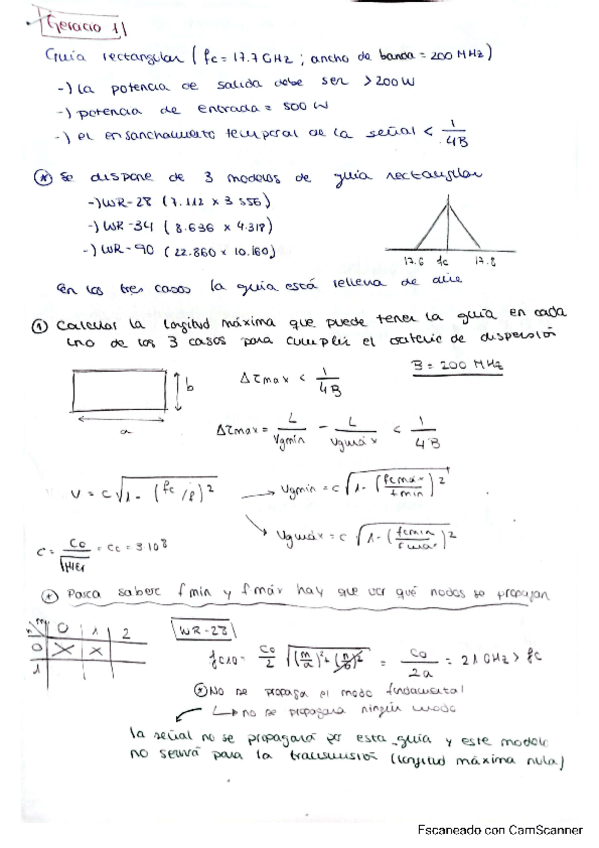 Ejercicio 1)
Guía rectangular (fc = 17.7 GHz ; ancho de banda = 200 MHz)
-) La potencia de salida debe ser > 200 W
-) potencia de entrada = 500 W
-) el ensanchamiento temporal de la señal < 1/4B
* Se dispone de 3 modelos de guía rectangular
-) WR-28 (7.112 x 3.556)
-) WR-34 (8.636 x 4.318)
-) WR-90 (22.860 x 10.160)
17.6 fc 17.8
En los tres casos la guía está rellena de aire
① Calcular la longitud máxima que puede tener la guía en cada
uno de los 3 casos para cumplir el criterio de dispersión
B = 200 MHz
b
a
Δτmax < 1/4B
Δτmax = L/Vgmin - L/Vgmáx < 1/4B
V = c√(1 - (fc/f)²)
Vgmin = c√(1 - (fcmáx/fmin)²)
Vgmáx = c√(1 - (fcmin/fmáx)²)
* Para saber fmin y fmáx hay que ver qué modos se propagan
m 0 1 2
n 0 X X
1
WR-28
fc10 = c0/2 √((m/a)² + (n/b)²) = c0/2a = 21 GHz > fc
* No se propaga el modo fundamental
↳ no se propagará ningún modo
la señal no se propagará por esta guía y este modelo
no servirá para la transmisión (longitud máxima nula)
Escaneado con CamScanner